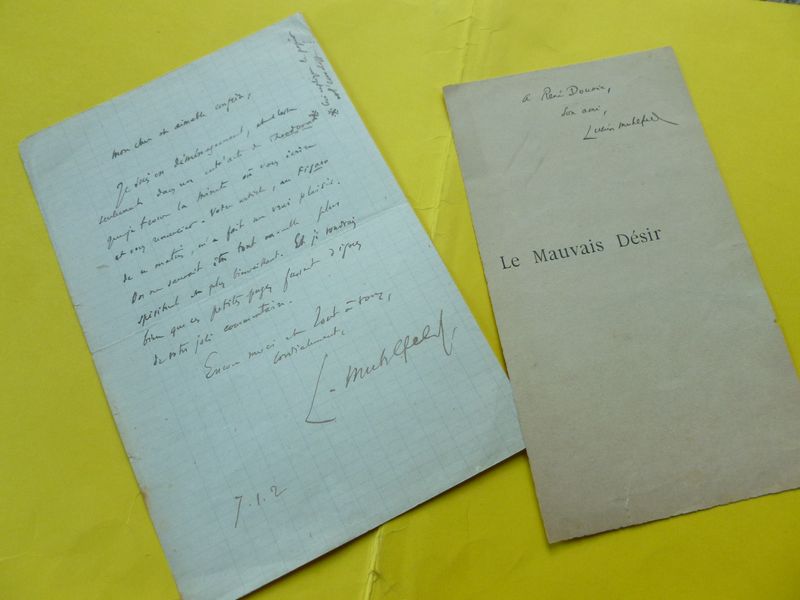 mon cher et aimable confrère,
Je suis en déménagement, et c'est
seulement dans un entr'acte de
que je trouve la minute où vous écrire
et vous remercier. Votre article, au Figaro
de ce matin, m'a fait un vrai plaisir.
On ne saurait être tout ensemble plus
spirituel ou plus bienveillant. Et je voudrais
bien que ces petites pages fussent dignes
de votre joli commentaire.
Encore merci et tout à vous,
cordialement,
L. Muhlfeld,
7.1.2
à René Doumic,
son ami,
Lucien Muhlfeld
Le Mauvais Désir